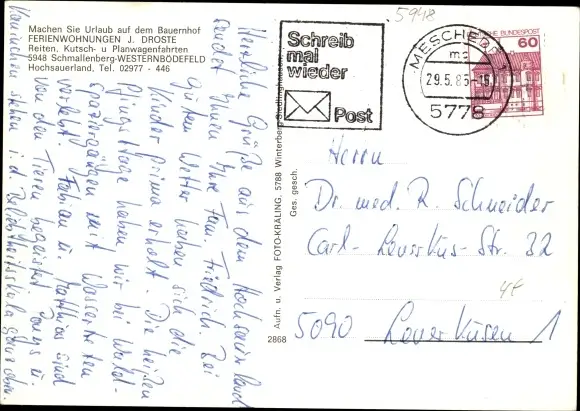 Machen Sie Urlaub auf dem Bauernhof
FERIENWOHNUNGEN J. DROSTE
Reiten, Kutsch- u Planwagenfahrten
5948 Schmallenberg-WESTERNBÖDEFELD
Hochsauerland, Tel. 02977 - 446
Herzliche Grüße aus dem Hochsauerland
sendet Ihnen Ihre Fam. Friedrich. Bei
gutem Wetter haben sich die
Kinder prima erholt. Die heißen
Pfingsttage haben wir bei Wald-
spaziergängen mit Wassertreten
verlebt. Fabian u. Matthias sind
von den Tieren begeistert. Ponys u.
Kaninchen stehen i. d. Beliebtheitsskala ganz oben.
5948
Schreib
mal
wieder
Post
MESCHEDE
mc
29.5.85-16
5778
DEUTSCHE BUNDESPOST
60
Aufn. u. Verlag FOTO-KRALING, 5788 Winterberg-Siedlinghausen
Ges. gesch.
2868
Herrn
Dr. med. R. Schneider
Carl-Leverkus-Str. 32
4f
5090 Leverkusen 1